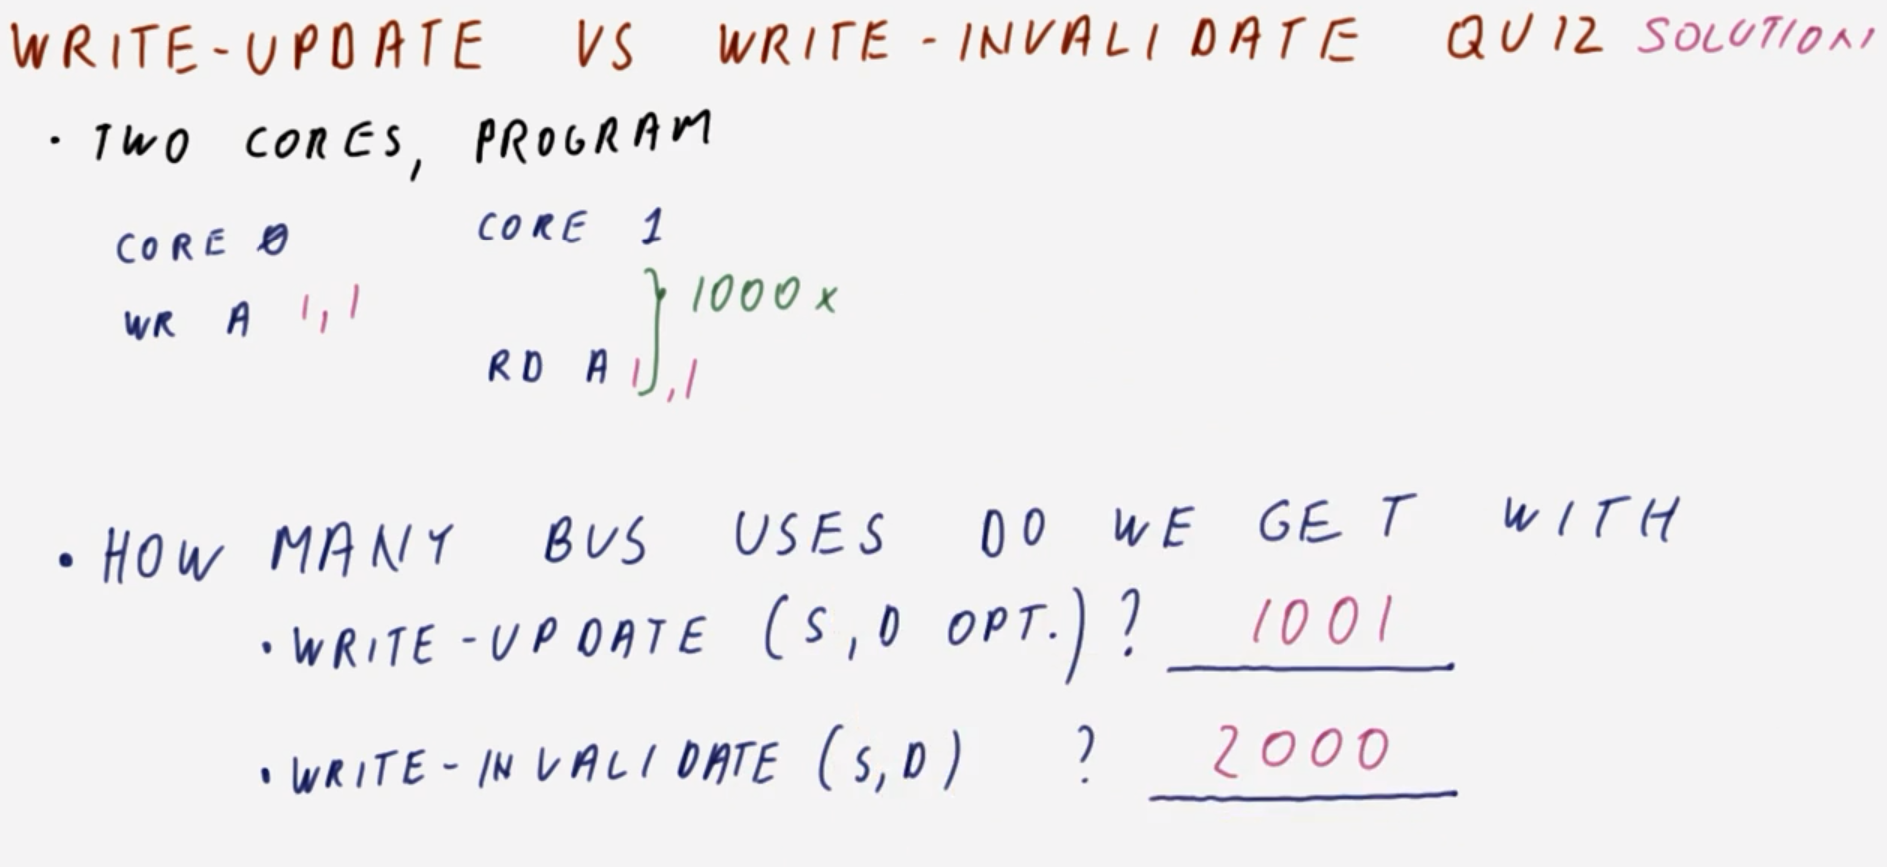 WRITE-UPDATE VS WRITE-INVALIDATE QUIZ SOLUTION
· TWO CORES, PROGRAM
CORE 0 CORE 1
WR A 1,1 } 1000x
RD A 1,1
· HOW MANY BUS USES DO WE GET WITH
· WRITE-UPDATE (S,D OPT.)? 1001
· WRITE-INVALIDATE (S,D) ? 2000